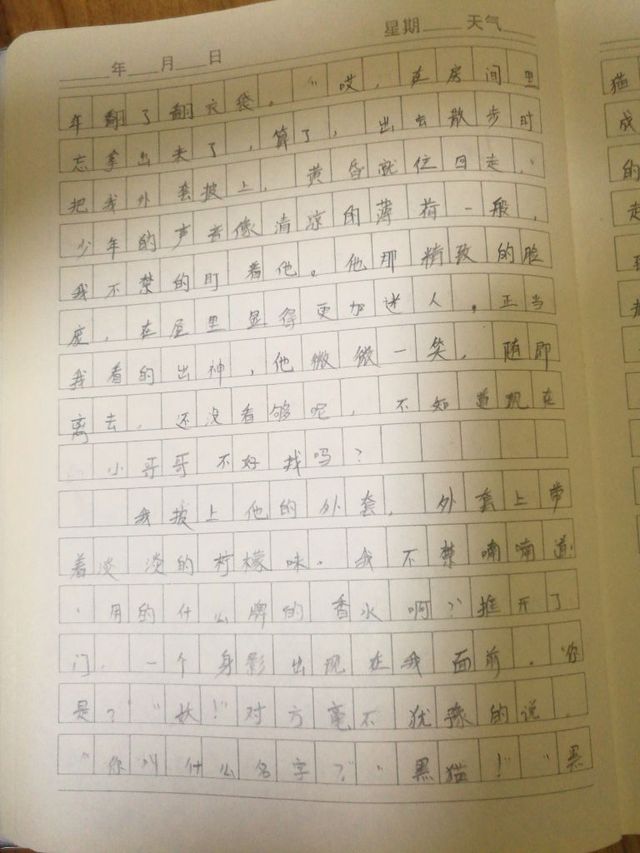 星期 天气
年 月 日
年翻了翻衣袋。“哎,在房间里
忘拿出来了,算了,出去散步时
把我外套披上,黄昏就位回走,”
少年的声音像清凉的薄荷一般,
我不禁的盯着他。他那精致的脸
庞,在屋里显得更加迷人。正当
我看的出神,他微微一笑,随即
离去,还没看够呢,不知道现在
小哥哥不好找吗?
我披上他的外套,外套上带
着淡淡的柠檬味。我不禁喃喃道:
“用的什么牌的香水啊?”推开了
门,一个身影出现在我面前,“你
是?”“妖!”对方毫不犹豫的说,
“你叫什么名字?”“黑猫!”“黑
猫
成
的
走